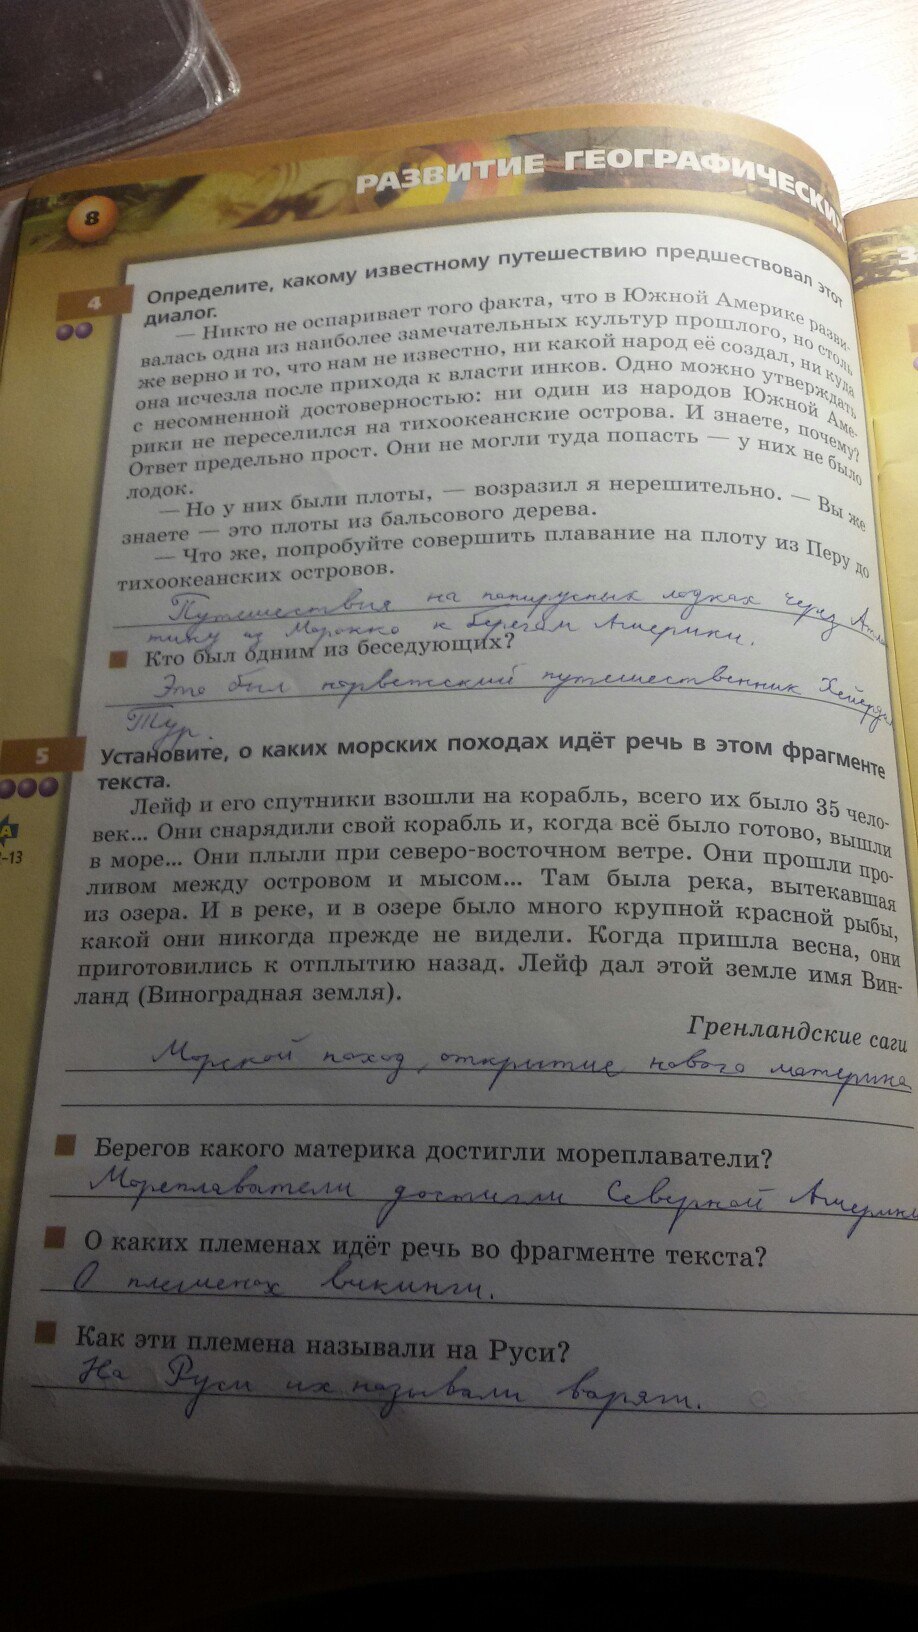 РАЗВИТИЕ ГЕОГРАФИЧЕСКИ
8
4
Определите, какому известному путешествию предшествовал этот
диалог.
— Никто не оспаривает того факта, что в Южной Америке разви-
валась одна из наиболее замечательных культур прошлого, но столь
же верно и то, что нам не известно, ни какой народ её создал, ни куда
она исчезла после прихода к власти инков. Одно можно утверждать
с несомненной достоверностью: ни один из народов Южной Аме-
рики не переселился на тихоокеанские острова. И знаете, почему?
Ответ предельно прост. Они не могли туда попасть — у них не было
лодок.
— Но у них были плоты, — возразил я нерешительно. — Вы же
знаете — это плоты из бальсового дерева.
— Что же, попробуйте совершить плавание на плоту из Перу до
тихоокеанских островов.
Путешествия на папирусных лодках через Атлан
тику из Марокко к берегам Америки.
Кто был одним из беседующих?
Это был норвежский путешественник Хейердал
Тур.
5
Установите, о каких морских походах идёт речь в этом фрагменте
текста.
Лейф и его спутники взошли на корабль, всего их было 35 чело-
век... Они снарядили свой корабль и, когда всё было готово, вышли
в море... Они плыли при северо-восточном ветре. Они прошли про-
ливом между островом и мысом... Там была река, вытекавшая
из озера. И в реке, и в озере было много крупной красной рыбы,
какой они никогда прежде не видели. Когда пришла весна, они
приготовились к отплытию назад. Лейф дал этой земле имя Вин-
ланд (Виноградная земля).
Гренландские саги
А
-13
Морской поход, открытие нового материка
Берегов какого материка достигли мореплаватели?
Мореплаватели достигли Северной Америки
О каких племенах идёт речь во фрагменте текста?
О племенах викинги.
Как эти племена называли на Руси?
На Руси их называли варяги.